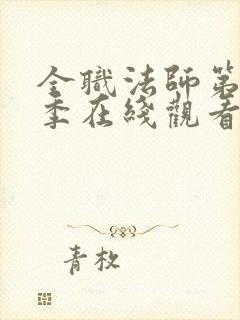 全職法師第
季在綫觀看
青枚